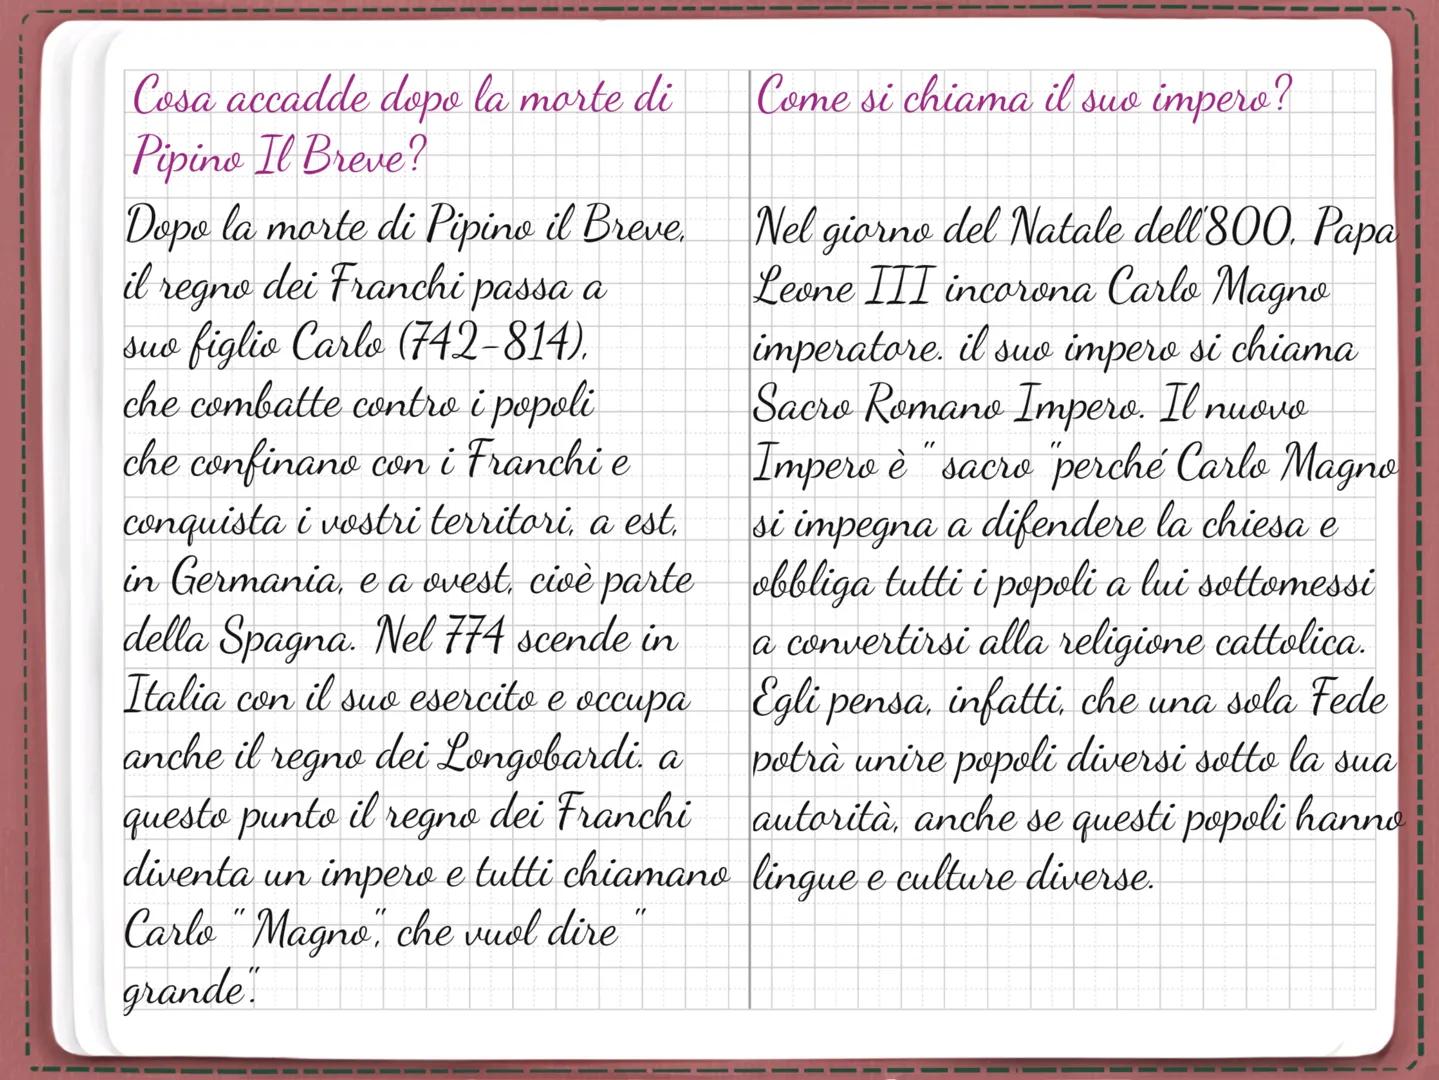 Cosa accadde dopo la morte di
Pipino Il Breve?
Dopo la morte di Pipino il Breve,
il regno dei Franchi passa a
suo figlio Carlo (742-814),
che combatte contro i popoli
che confinano con i Franchi e
conquista i vostri territori, a est,
in Germania, e a ovest, cioè parte
della Spagna. Nel 774 scende in
Italia con il suo esercito e occupa
anche il regno dei Longobardi. a
questo punto il regno dei Franchi
diventa un impero e tutti chiamano
Carlo " Magno", che vuol dire "
grande".
Come si chiama il suo impero?
Nel giorno del Natale dell'800, Papa
Leone III incorona Carlo Magno
imperatore. il suo impero si chiama
Sacro Romano Impero. Il nuovo
Impero è " sacro "perché Carlo Magno
si impegna a difendere la chiesa e
obbliga tutti i popoli a lui sottomessi
a convertirsi alla religione cattolica.
Egli pensa, infatti, che una sola Fede
potrà unire popoli diversi sotto la sua
autorità, anche se questi popoli hanno
lingue e culture diverse.